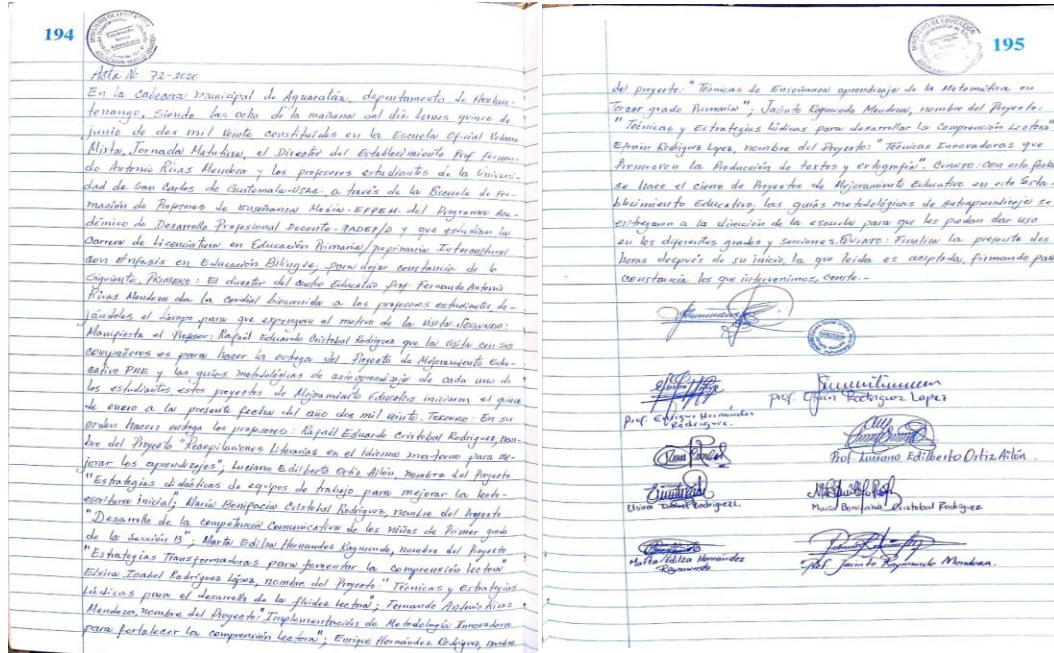 194
Acta No. 72-2020
En la cabecera municipal de Aguacatán, departamento de Huehue-
tenango, siendo las ocho de la mañana del día lunes quince de
junio de dos mil veinte constituidos en la Escuela Oficial Urbana
Mixta, Jornada Matutina, el Director del Establecimiento Prof. Fernan-
do Antonio Rivas Mendoza y los profesores estudiantes de la Universi-
dad de San Carlos de Guatemala-USAC- a través de la Escuela de For-
mación de Profesores de Enseñanza Media-EFPEM- del Programa Aca-
démico de Desarrollo Profesional Docente-PADEP/D y que estudian la
Carrera de Licenciatura en Educación Primaria/preprimaria Intercultural
con énfasis en Educación Bilingüe, para dejar constancia de lo
siguiente, PRIMERO: El director del centro Educativo prof. Fernando Antonio
Rivas Mendoza da la cordial bienvenida a los profesores estudiantes de-
jándoles el tiempo para que expongan el motivo de la visita. SEGUNDO:
Manifiesta el Profesor: Rafael Eduardo Cristobal Rodriguez que la visita con sus
compañeros es para hacer la entrega del Proyecto de Mejoramiento Edu-
cativo PME y las guías metodológicas de autoaprendizaje de cada uno de
los estudiantes estos proyectos de Mejoramiento Educativo iniciaron el quince
de enero a la presente fecha del año dos mil veinte. TERCERO: En su
orden hacen entrega los profesores: Rafael Eduardo Cristobal Rodriguez, nom-
bre del Proyecto "Recopilaciones Literarias en el idioma materno para me-
jorar los aprendizajes", Luciano Edilberto Ortiz Ailón, nombre del Proyecto
"Estrategias didácticas de equipos de trabajo para mejorar la lecto-
escritura inicial"; María Bonifacia Cristobal Rodriguez, nombre del Proyecto
"Desarrollo de la competencia Comunicativa de los niños de Primer grado
de la Sección B"; Marta Edilza Hernandez Raymundo, nombre del Proyecto
"Estrategias Transformadoras para fomentar la comprensión lectora"
Elsira Isabel Rodriguez López, nombre del Proyecto: "Técnicas y Estrategias
Lúdicas para el desarrollo de la fluidez lectora"; Fernando Antonio Rivas
Mendoza, nombre del Proyecto: "Implementación de Metodología Innovadora
para fortalecer la comprensión lectora"; Enrique Hernández Rodriguez, nombre
195
del proyecto: "Técnicas de Enseñanza aprendizaje de la Matemática en
Tercer grado Primaria"; Jacinto Raymundo Mendoza, nombre del Proyecto:
"Técnicas y Estrategias lúdicas para desarrollar la Comprensión Lectora"
Efraín Rodriguez Lopez, nombre del Proyecto: "Técnicas Innovadoras que
Promueven la Producción de textos y ortografía". CUARTO: con esta fecha
se hace el cierre de Proyectos de Mejoramiento Educativo en este Esta-
blecimiento Educativo, las guías metodológicas de Autoaprendizaje se
entregaron a la dirección de la escuela para que les puedan dar uso
en los diferentes grados y secciones. QUINTO: Finaliza la presente dos
horas después de su inicio, la que leída es aceptada, firmando para
constancia los que intervenimos, conste.-
Prof. Enrique Hernández
Rodriguez.
prof. Efraín Rodriguez Lopez
Prof. Luciano Edilberto Ortiz Ailón.
Elsira Isabel Rodríguez L.
María Bonifacia Cristobal Rodriguez
Marta Edilza Hernández
Raymundo
Prof. Jacinto Raymundo Mendoza.